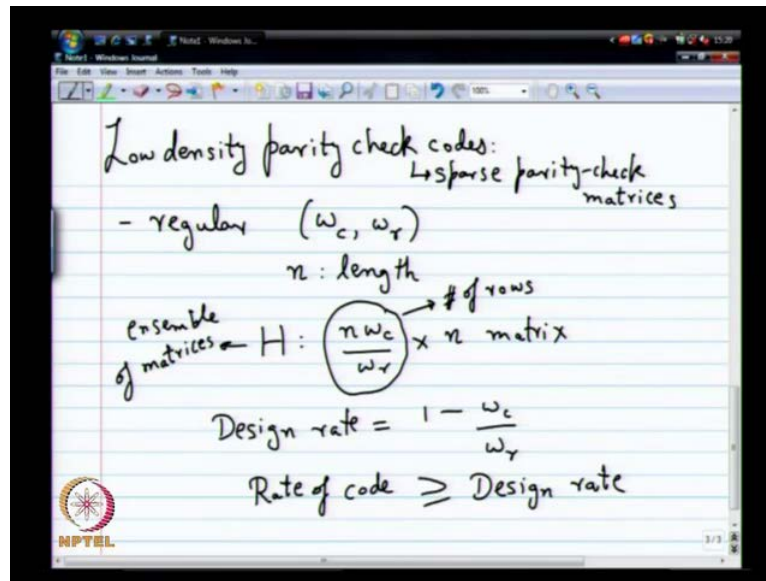 Note1 - Windows Jo...
15:20
Note1 - Windows Journal
File Edit View Insert Actions Tools Help
100%
Low density parity check codes:
↳ sparse parity-check
matrices
- regular (w_c, w_r)
n : length
# of rows
ensemble
of matrices ← H : (n w_c / w_r) × n matrix
Design rate = 1 - w_c / w_r
Rate of code ≥ Design rate
NPTEL
3/3